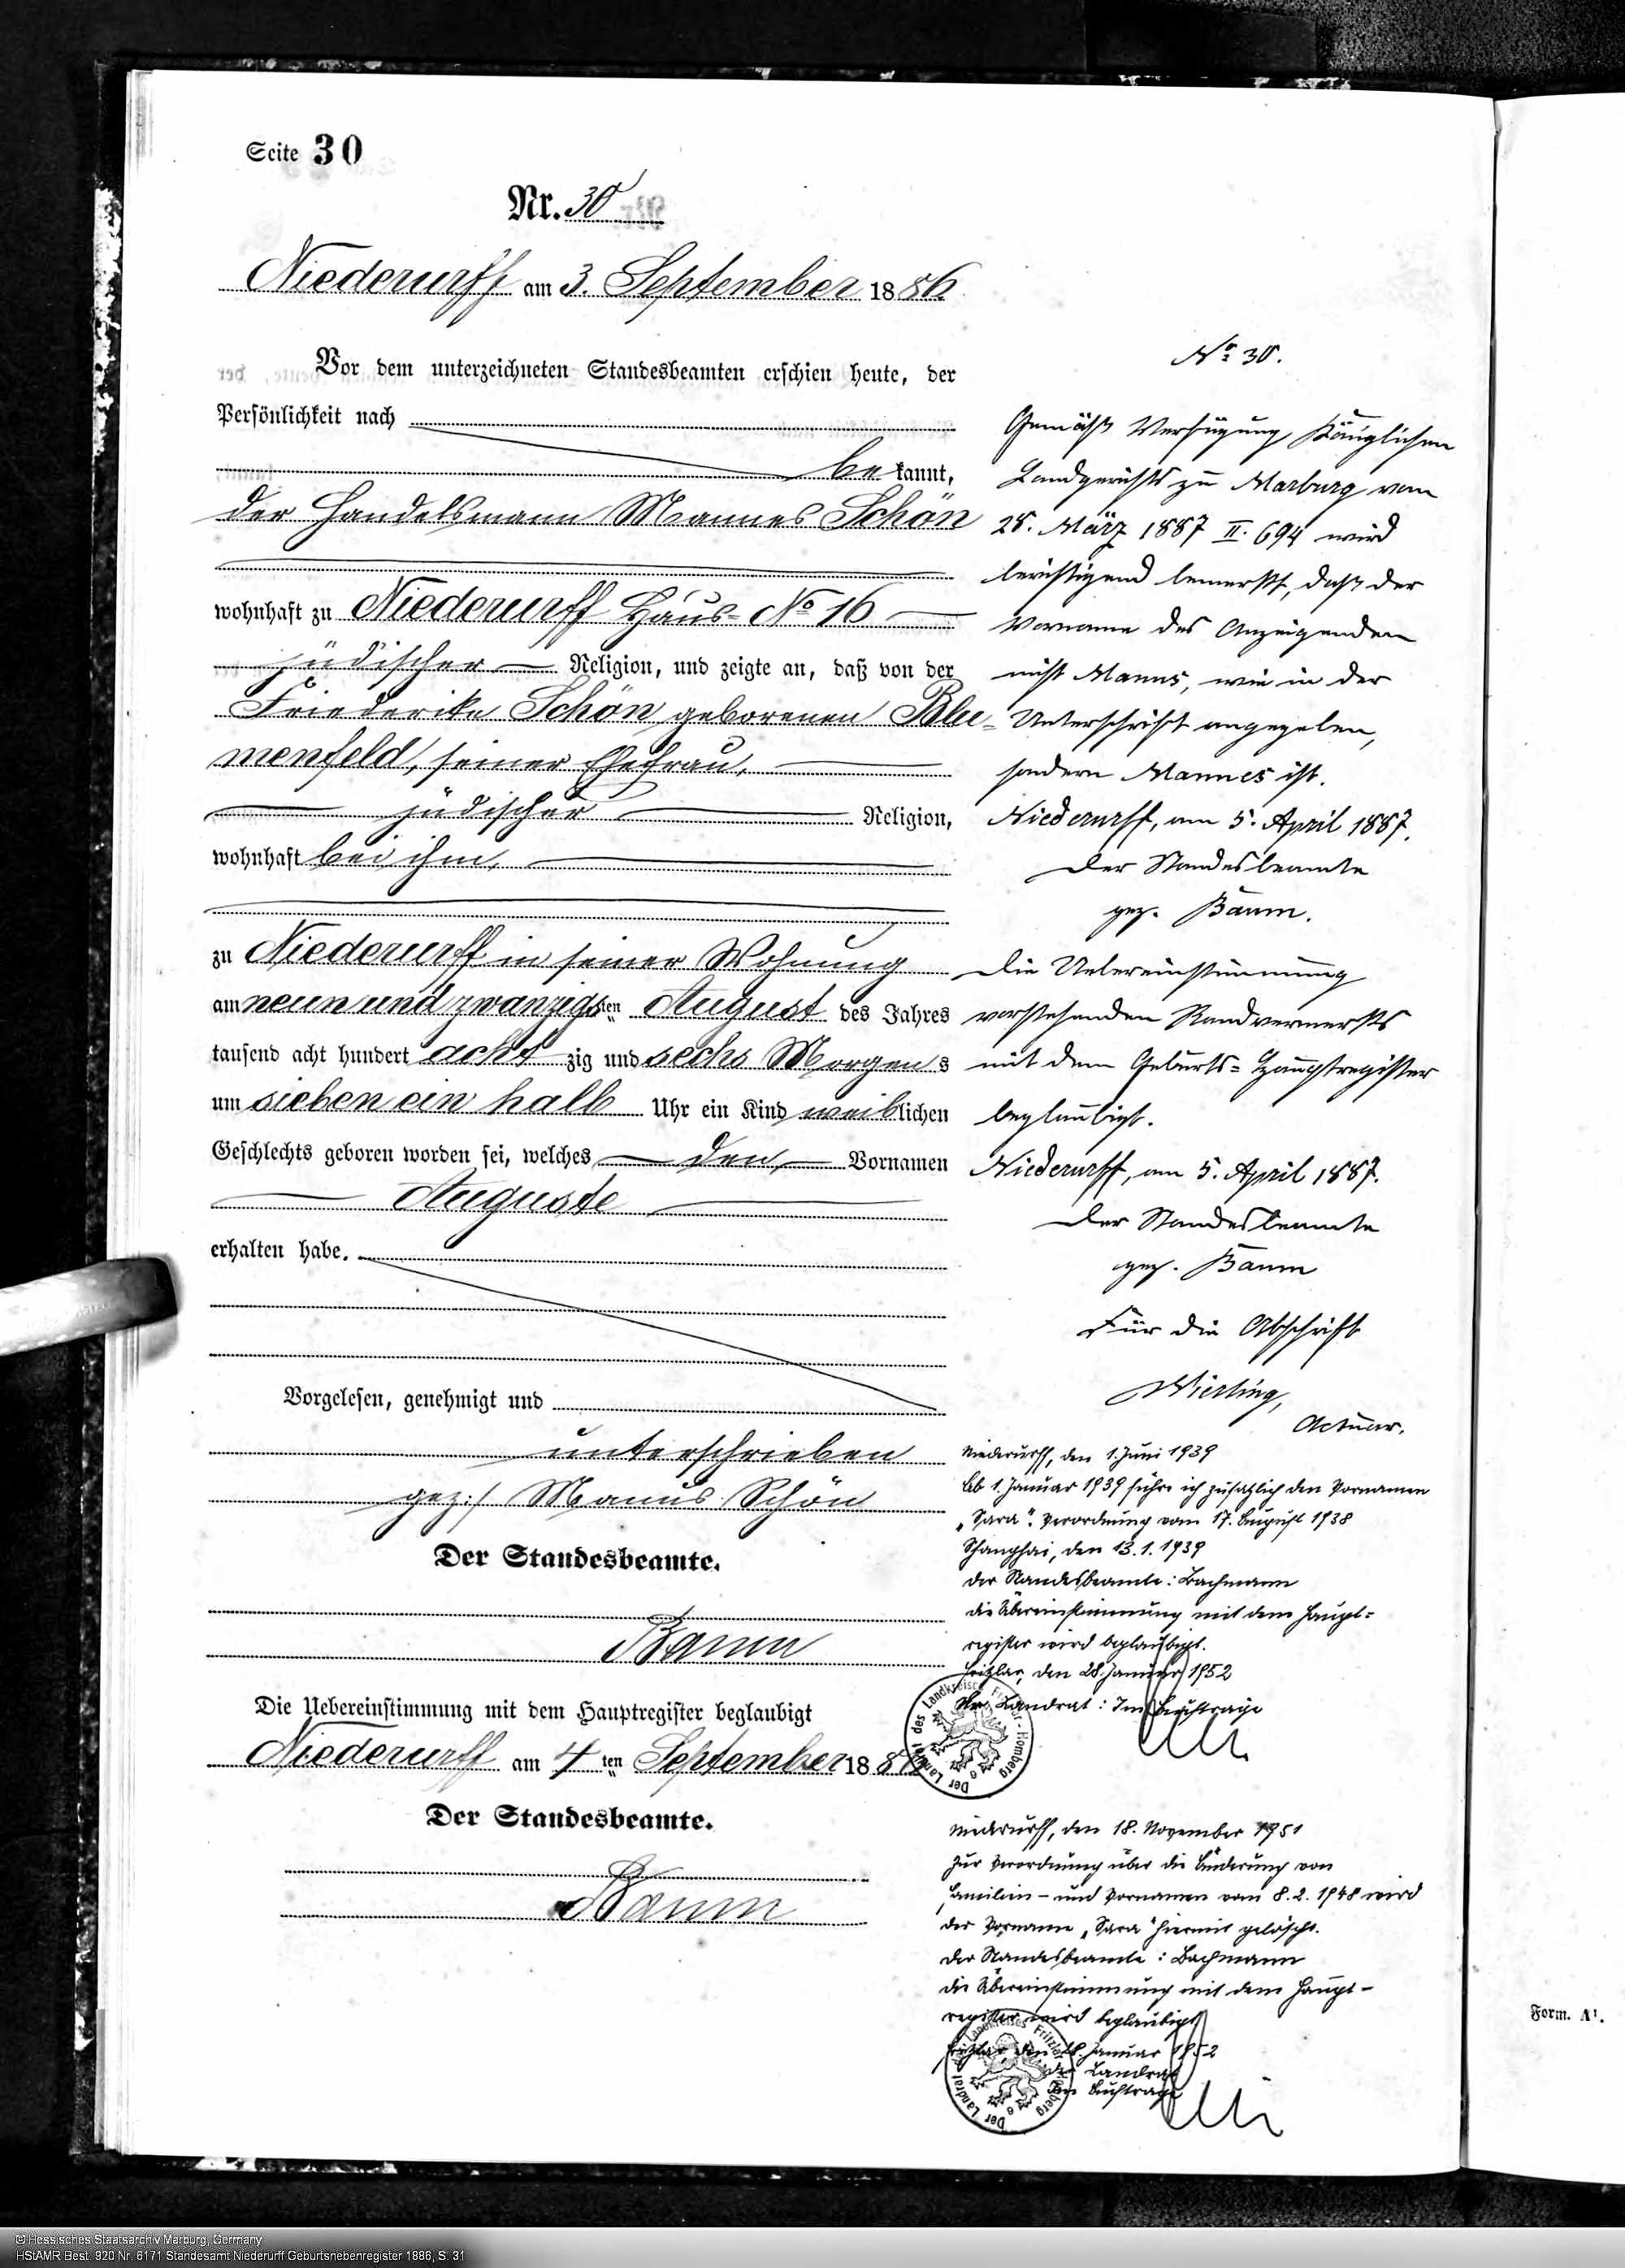 Seite 30
Nr. 30
Niederurff am 3. September 1886.
Vor dem unterzeichneten Standesbeamten erschien heute, der
Persönlichkeit nach
bekannt,
der Handelsmann Mannes Schön
wohnhaft zu Niederurff Haus-No 16
jüdischer Religion, und zeigte an, daß von der
Friederike Schön geborenen Blu-
menfeld, seiner Ehefrau,
jüdischer Religion,
wohnhaft bei ihm,
zu Niederurff in seiner Wohnung
am neun und zwanzigsten August des Jahres
tausend acht hundert achtzig und sechs Morgens
um sieben ein halb Uhr ein Kind weiblichen
Geschlechts geboren worden sei, welches den Vornamen
Auguste
erhalten habe.
Vorgelesen, genehmigt und
unterschrieben
gez:/ Manus Schön
Der Standesbeamte.
Baum
Die Uebereinstimmung mit dem Hauptregister beglaubigt
Niederurff am 4ten September 188
Der Standesbeamte.
Baum
No 30.
Gemäß Verfügung Königlichen
Landgerichts zu Marburg vom
28. März 1887 II. 694 wird
berichtigend bemerkt, daß der
Vorname des Anzeigenden
nicht Manus, wie in der
Unterschrift angegeben,
sondern Mannes ist.
Niederurff, am 5. April 1887.
Der Standesbeamte
gez. Baum.
Die Uebereinstimmung
vorstehenden Randvermerks
mit dem Geburts-Hauptregister
beglaubigt.
Niederurff, am 5. April 1887.
Der Standesbeamte
gez. Baum
Für die Abschrift
Actuar.
Niederurff, den 1. Juni 1939
Ab 1. Januar 1939 führe ich zusätzlich den Vornamen
„Sara". Verordnung vom 17. August 1938
Shanghai, den 13.1.1939
Der Standesbeamte: Bachmann
Die Übereinstimmung mit dem Haupt-
register wird beglaubigt.
Fritzlar, den 28. Januar 1952
Der Landrat: Im Auftrage
Der Landrat des Landkreises Fritzlar-Homberg
Niederurff, den 18. November 1951
Zur Verordnung über die Änderung von
Familien- und Vornamen vom 8.2.1948 wird
der Vorname „Sara" hiermit gelöscht.
Der Standesbeamte: Bachmann
Die Übereinstimmung mit dem Haupt-
register wird beglaubigt
Fritzlar, den 28. Januar 1952
Der Landrat
Im Auftrage
Der Landrat des Landkreises Fritzlar-Homberg
Form. A1.
© Hessisches Staatsarchiv Marburg, Germany
HStAMR Best. 920 Nr. 6171 Standesamt Niederurff Geburtsnebenregister 1886, S. 31